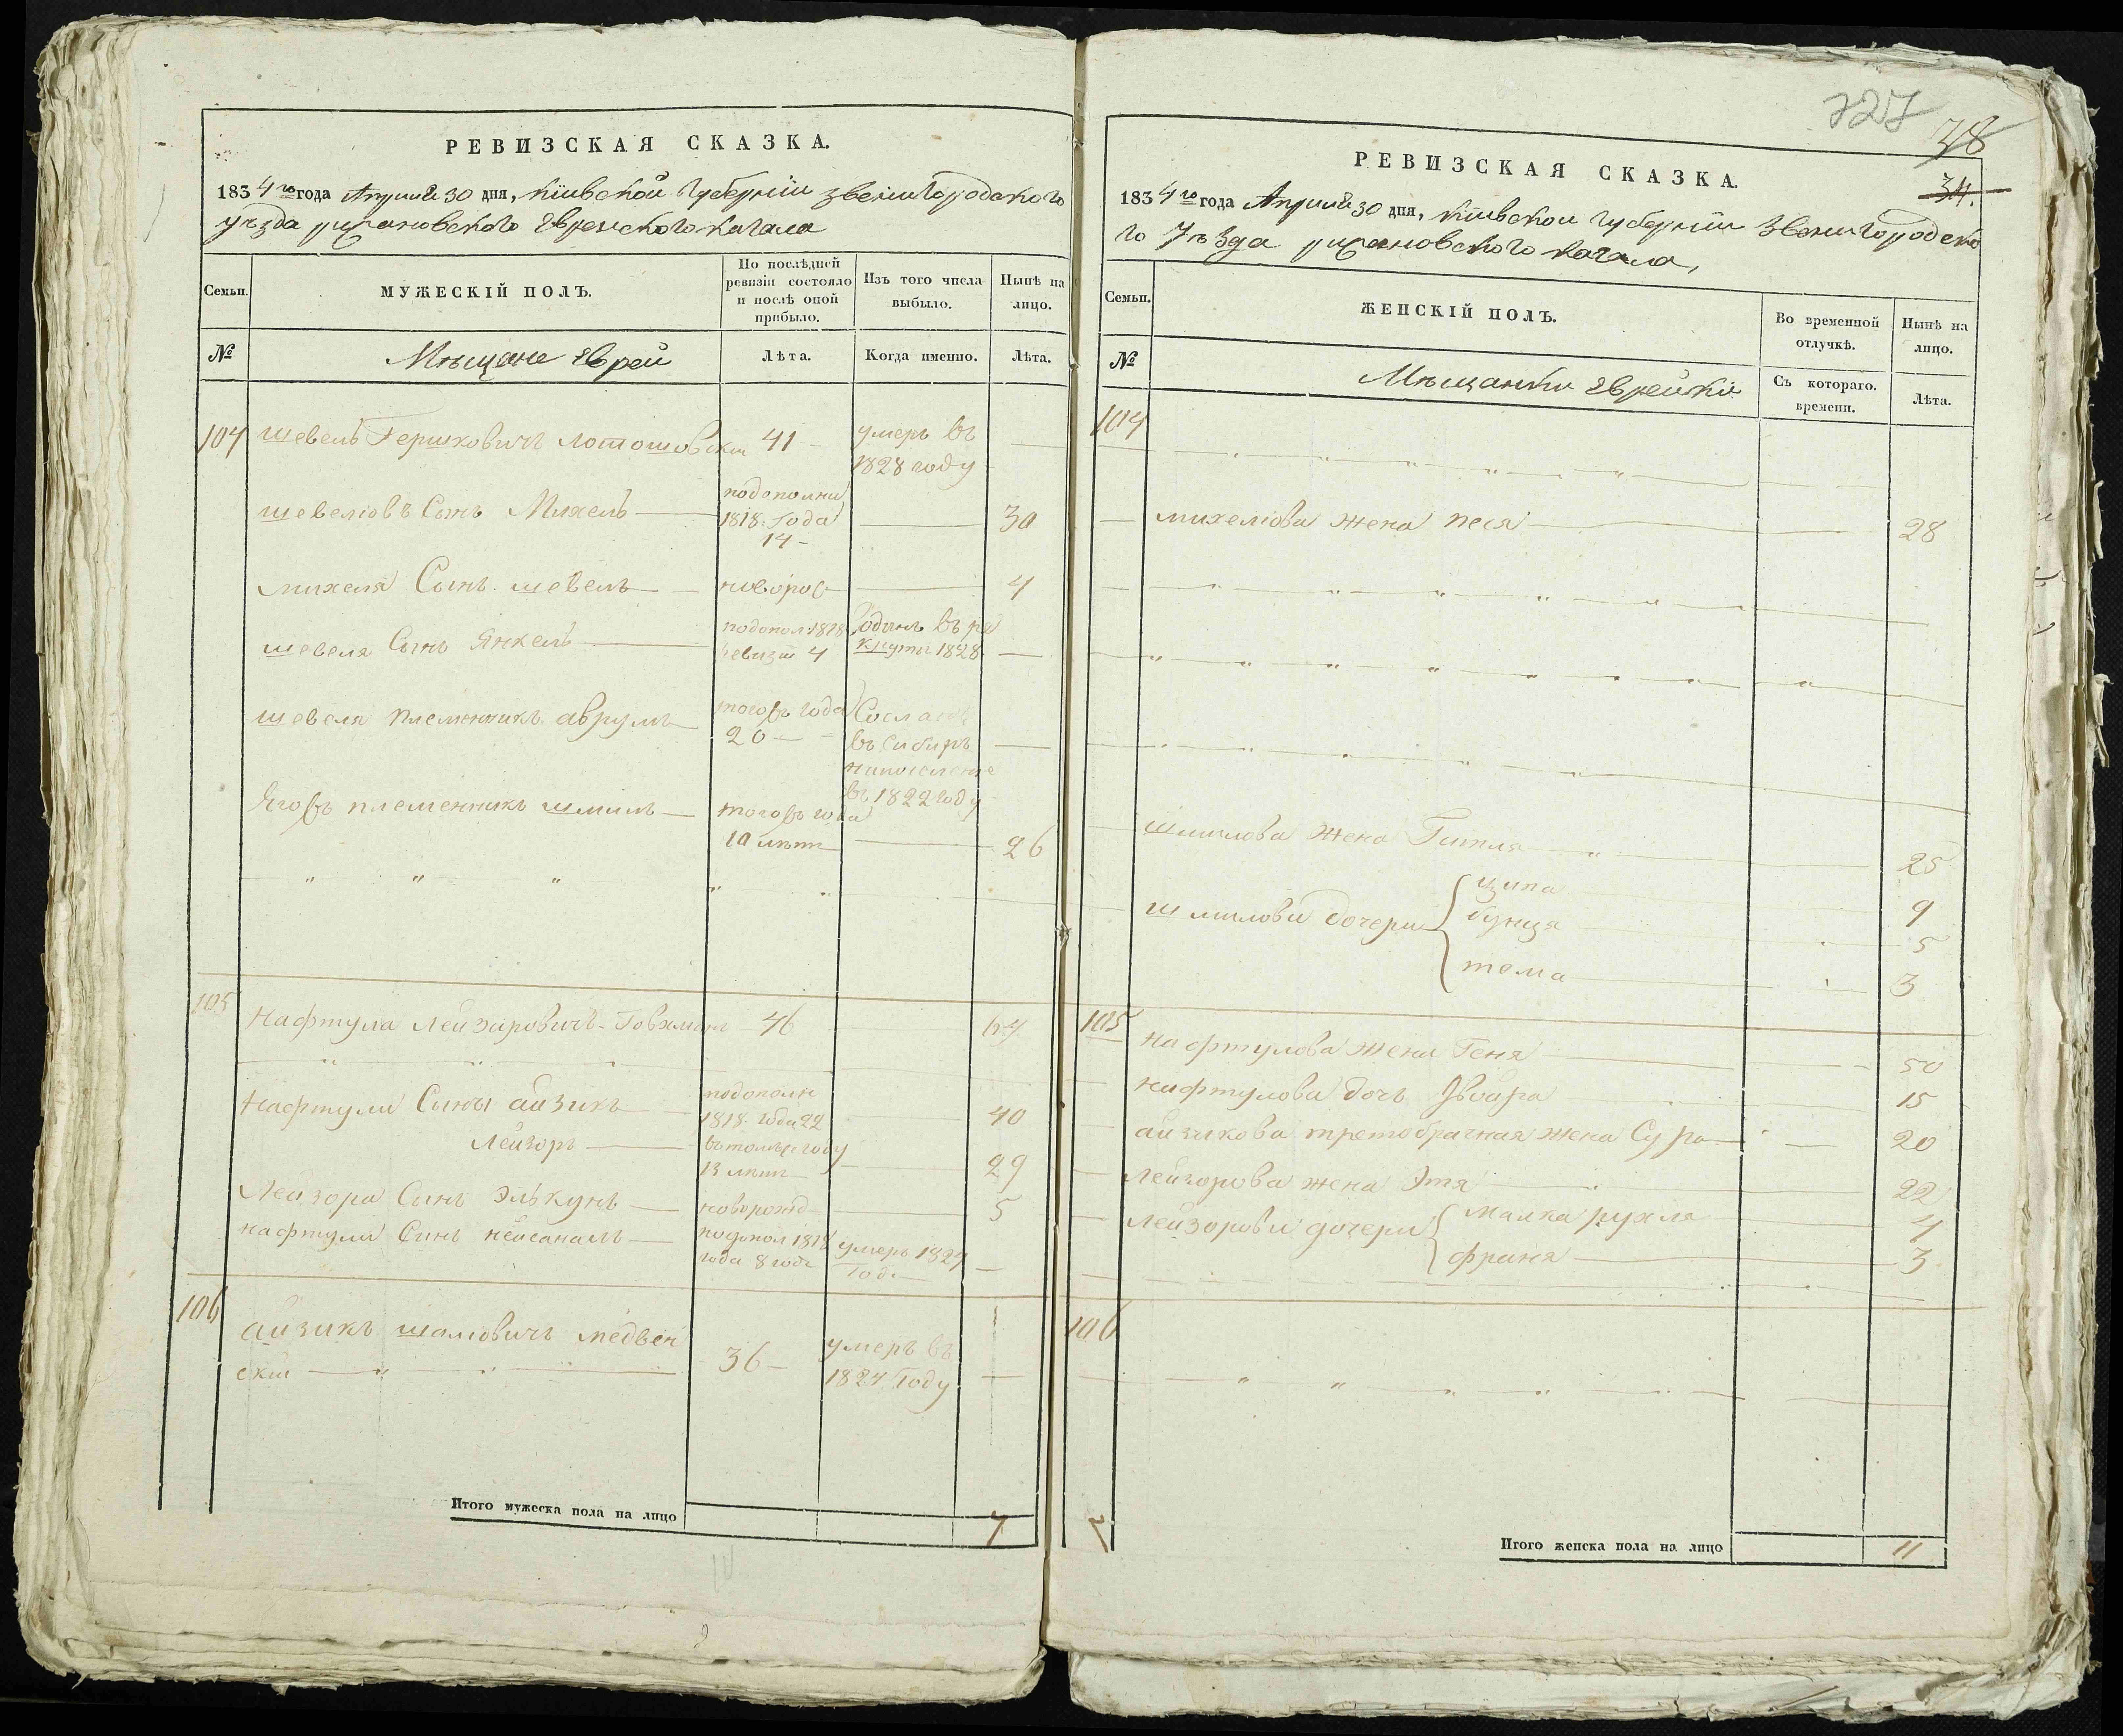 РЕВИЗСКАЯ СКАЗКА.
1834го года Априля 30 дня, Кіивской Губерніи Звенигородского
уѣзда рижановского Еврейского кагала
Семьи.
МУЖЕСКІЙ ПОЛЪ.
По послѣдней ревизіи состояло и послѣ оной прибыло.
Изъ того числа выбыло.
Нынѣ на лицо.
№
Мѣщане Евреи
Лѣта.
Когда именно.
Лѣта.
104 шевель Гершковичъ лотошовскии 41 умеръ въ
1828 году
подополни
шевеліовъ Сынъ Михель 1818. Года 30
14
михеля Сынъ шевель новорож 4
подопол 1818 Отданъ въ ре
шевеля Сынъ Янкель ревизіи 4 круты 1828
шевеля племенникъ аврумъ тогожъ года Сосланъ
20 въ Сибиръ
на поселеніе
въ 1822 году
Егожъ племенникъ шмиль тогожъ года
10 лѣтъ 26
105 Нафтула Лейзаровичъ Говхманъ 46 64
подополн
Нафтули Сыны айзикъ 1818 года 22 40
Лейзоръ въ томъже году
13 лѣтъ 29
Лейзора Сынъ Элькунъ новорожд 5
нафтули Синъ нейсаналъ подопол 1818 умеръ 1827
года 8 годъ Год
106 айзикъ шаліовичъ медвен
ский 36 умеръ въ
1827 Году
Итого мужеска пола на лицо 7
727
38
34.
РЕВИЗСКАЯ СКАЗКА.
1834го года Априля 30 дня, Кіивской Губерніи Звенигородско
го Уѣзда рижановского кагала,
Семьи.
ЖЕНСКІЙ ПОЛЪ.
Во временной отлучкѣ.
Нынѣ на лицо.
№
Мѣщанки Еврейки
Съ котораго. времени.
Лѣта.
104
михеліова жена песя 28
шмилова жена Гитля 25
ципа 9
шмилови дочери бунця 5
тема 3
105 нафтулова жена Геня 50
нафтулова дочъ Двойра 15
айзикова третобрачная жена Сура 20
лейзорова жена Этя 22
лейзорови дочери Малка рухля 4
франя 3
106
7
Итого женска пола на лицо 11